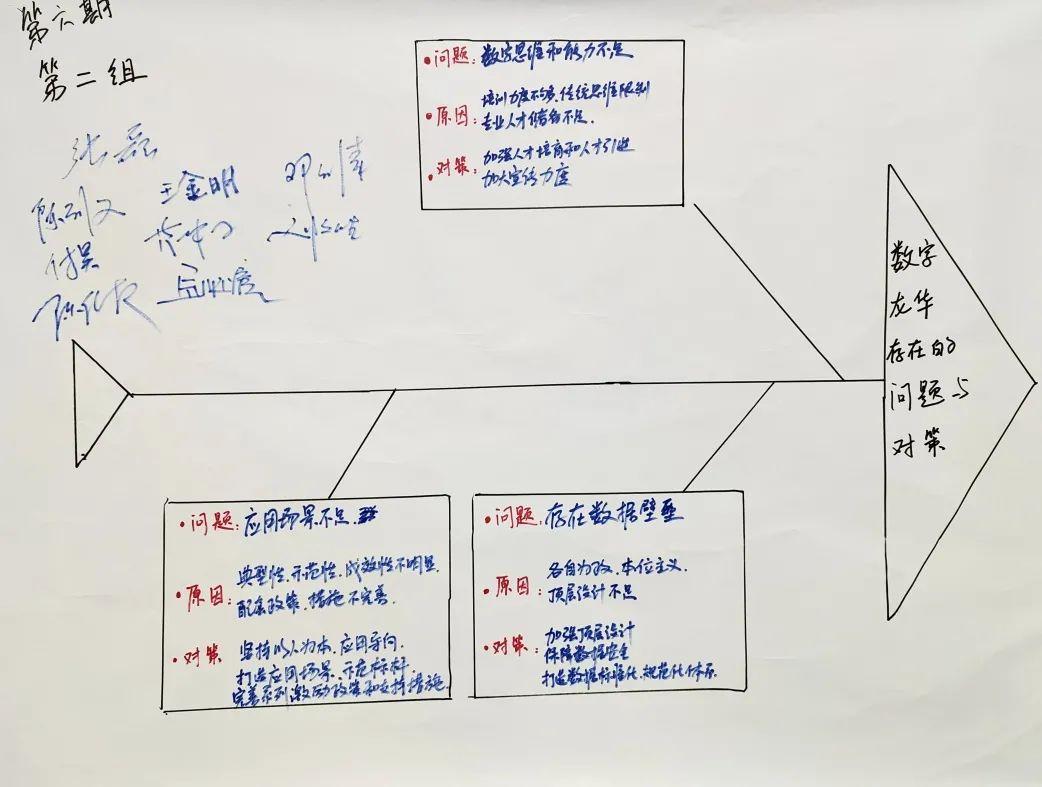 第六期
第二组
张磊
王金明
付昊
•问题：数字思维和能力不足
•原因：培训力度不够、传统思维限制
专业人才储备不足.
•对策：加强人才培育和人才引进
加大宣传力度
数字
龙华
存在的
问题与
对策
•问题：应用场景不足
•原因：典型性、示范性、成效性不明显.
配套政策、措施不完善.
•对策 坚持以人为本、应用导向
打造应用场景、示范标杆.
完善系列激励政策和支持措施.
•问题：存在数据壁垒
•原因：各自为政、本位主义.
顶层设计不足
•对策：加强顶层设计
保障数据安全
打造数据标准化、规范化体系.